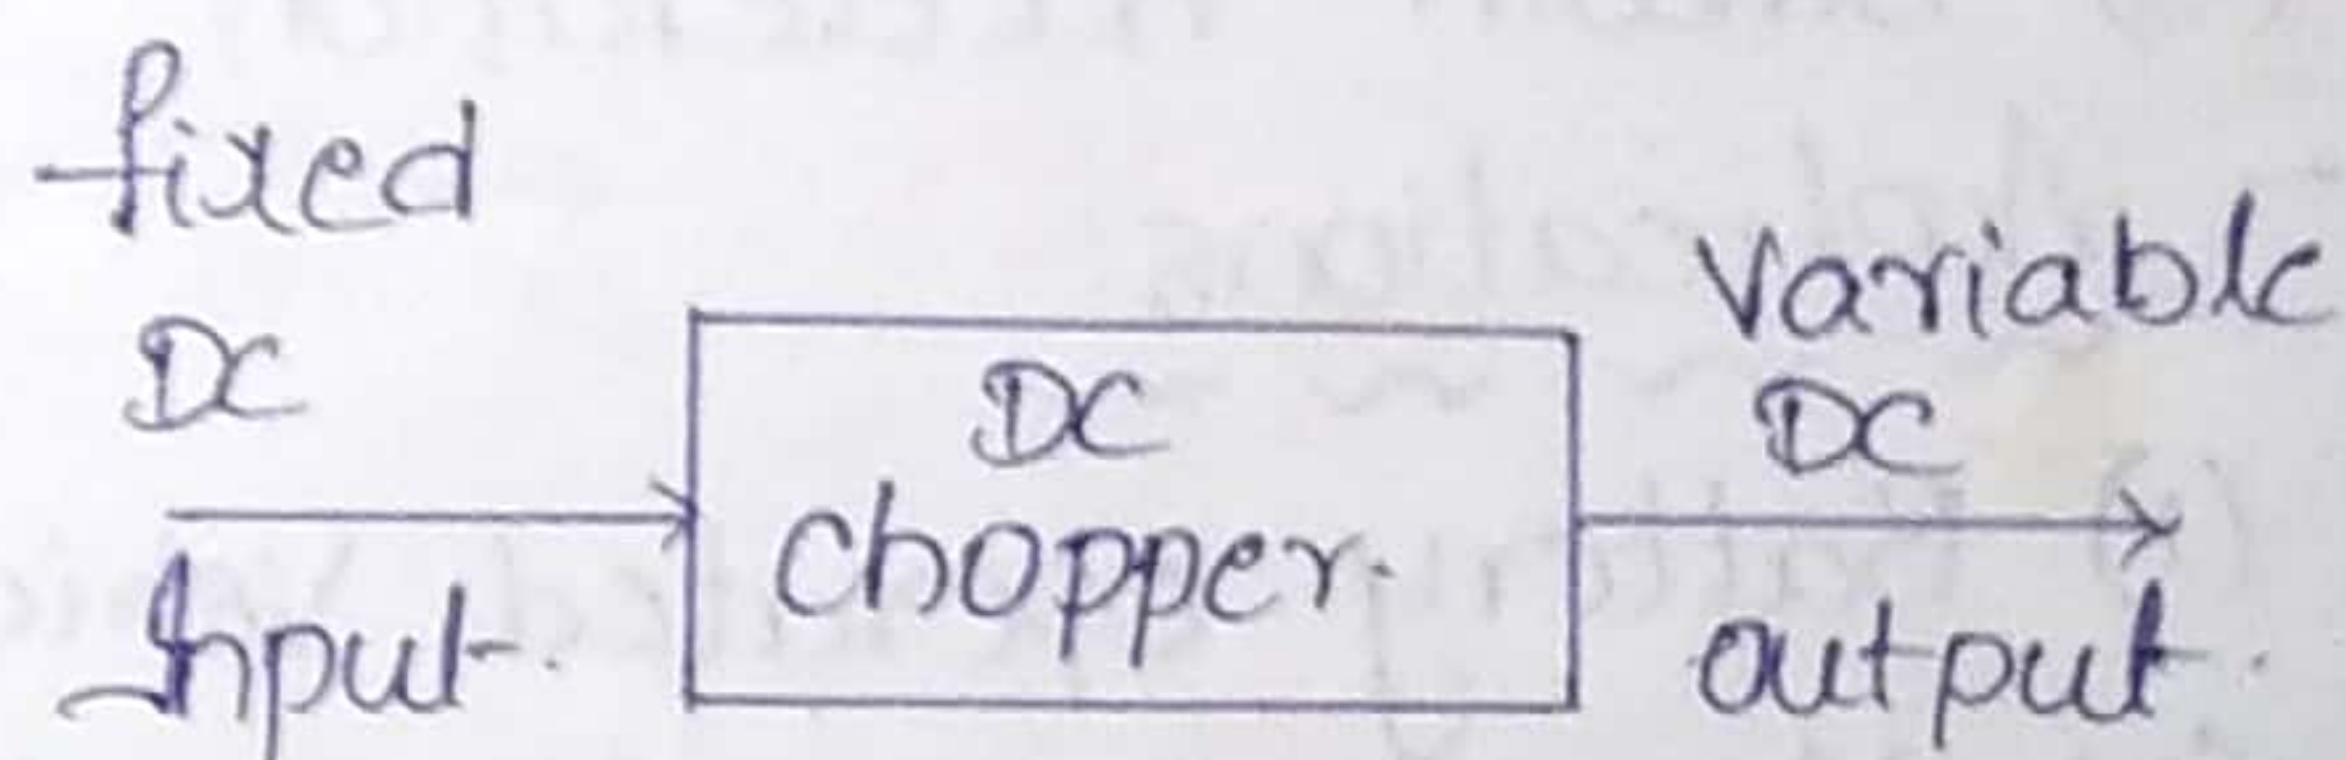 fixed
DC
Input.
DC
chopper.
Variable
DC
output.